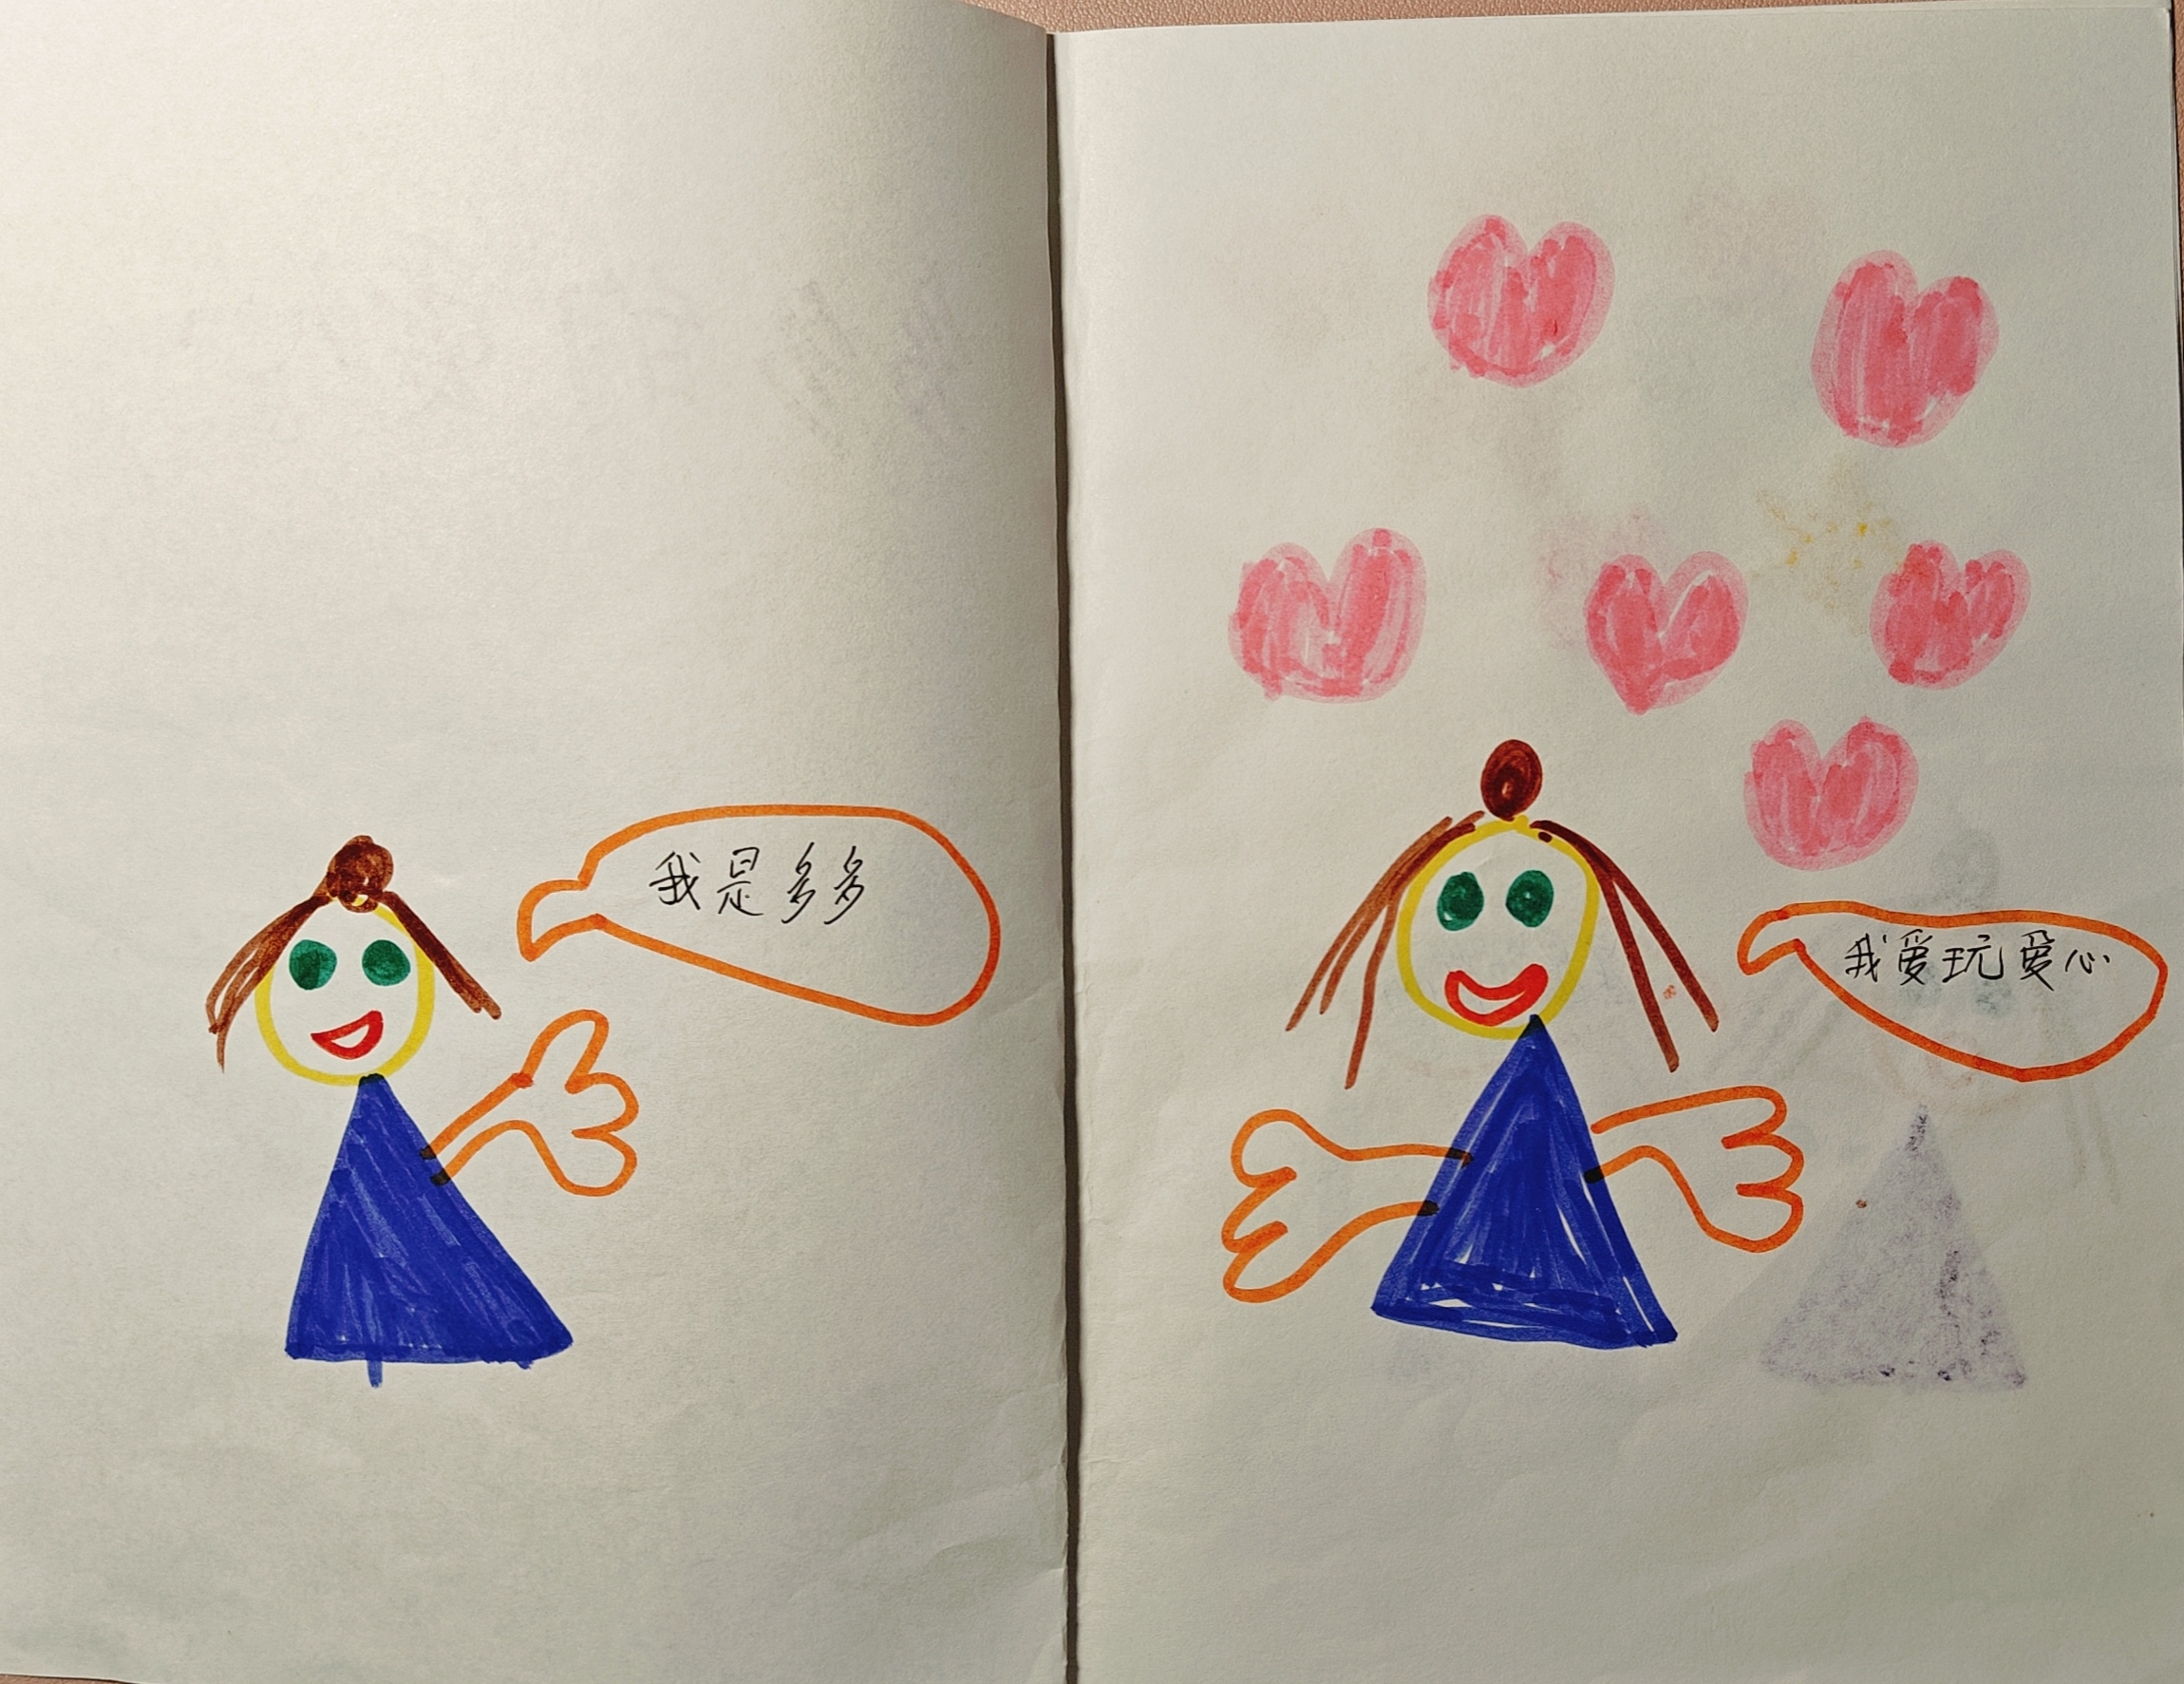 我是多多
我爱玩爱心